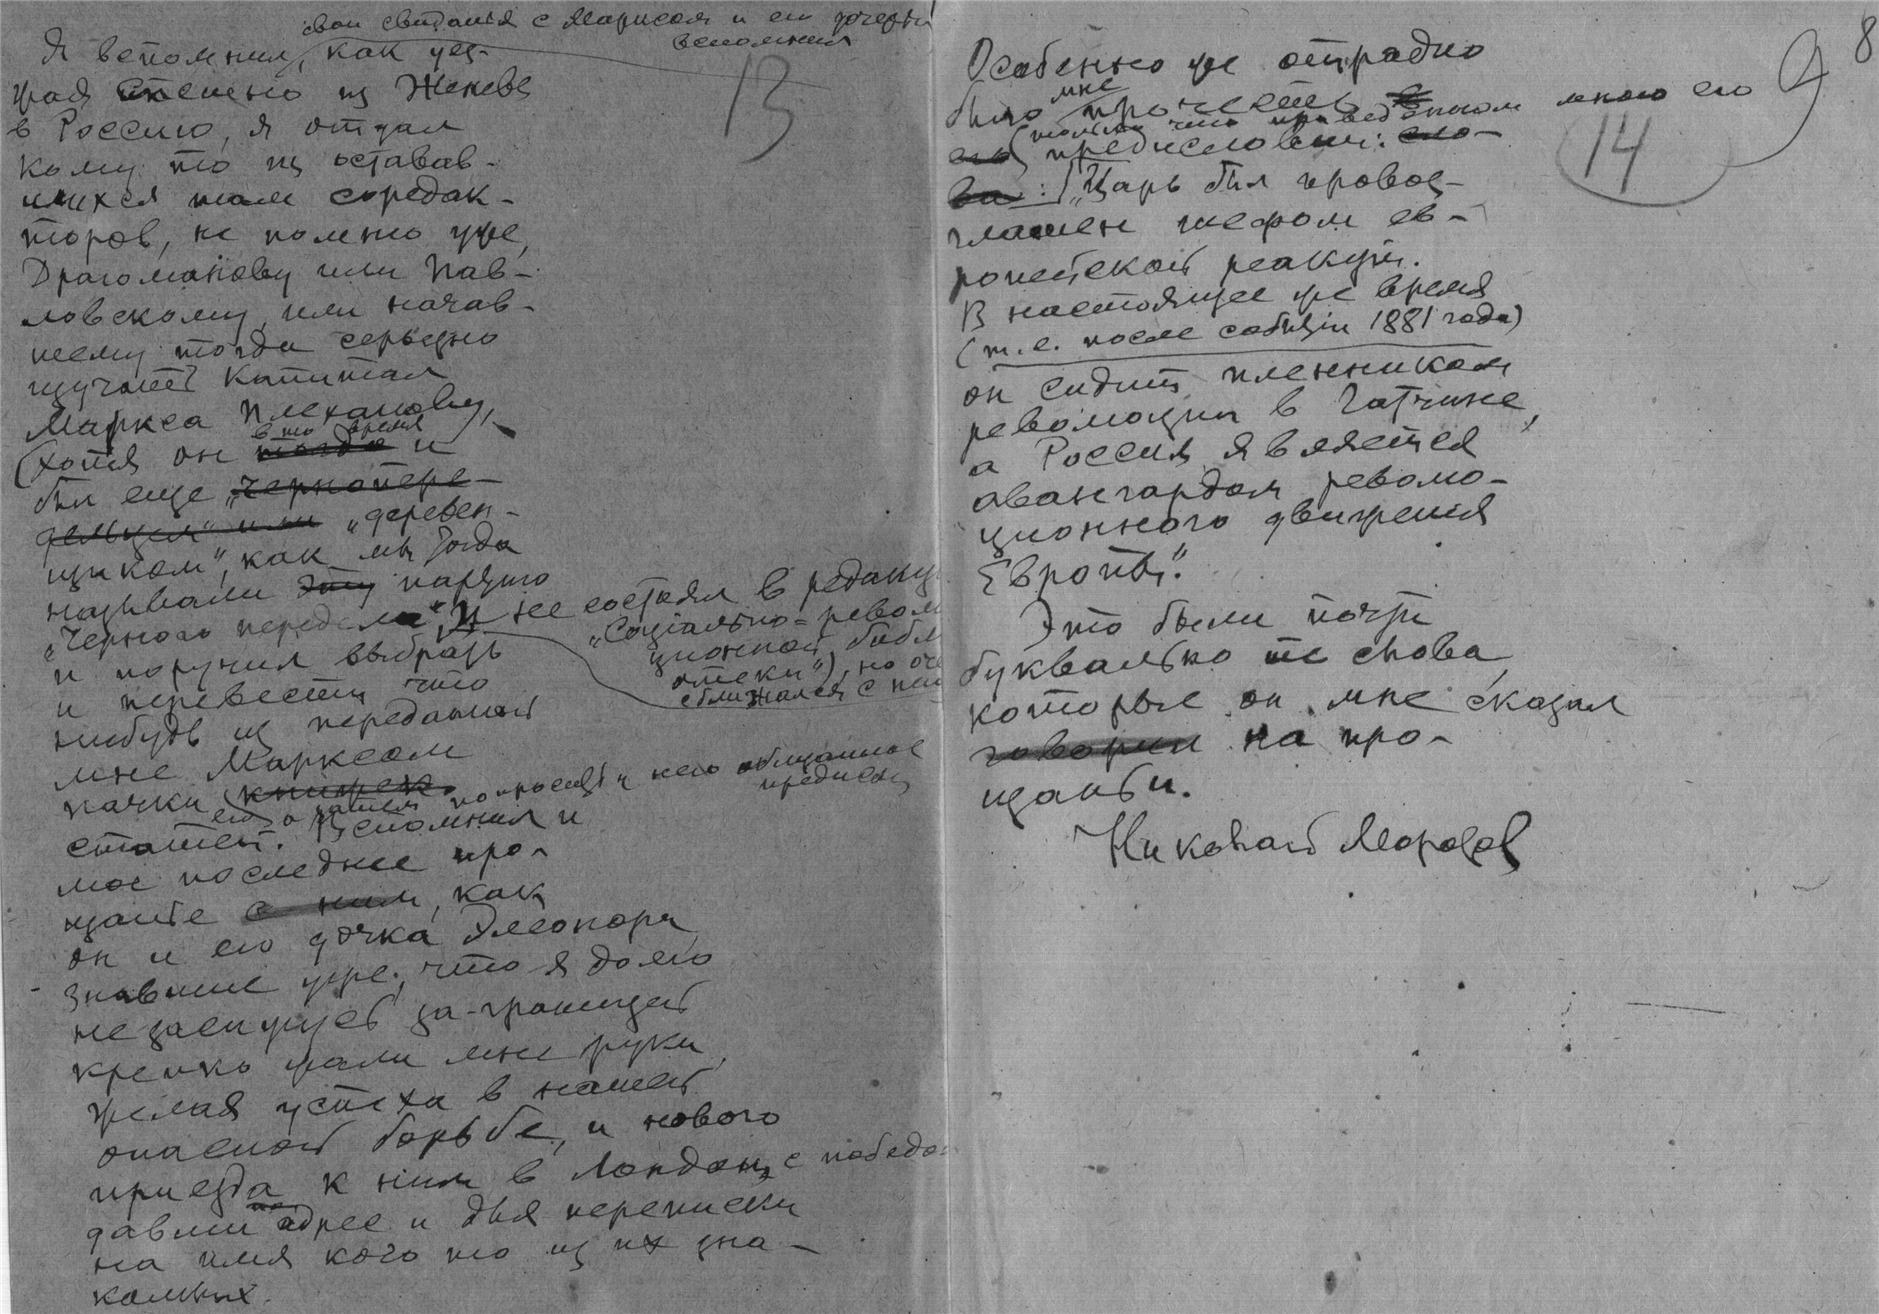 свои свидания с Марксом и его дочерью
вспомнил
Я вспомнил, как уез-
жая спешно из Женевы
в Россию, я отдал
кому то из оставав-
шихся там соредак-
торов, не помню уже,
Драгоманову или Пав-
ловскому, или начав-
шему тогда серьезно
изучать Капитал
Маркса Плеханову,
в то время
(хотя он тогда и
был еще „чернопере-
дельцем" или „деревен-
щиком", как мы тогда
называли эту партию
„Черного передела", и не состоял в редакц
„Социально-револю
ционной библ
отеки"), но оче
сближался с ней
и поручил выбрать
и перевести что
нибудь из переданной
мне Марксом
пачки книжек.
его а затем попросить у него обещанное
предисл
статей. Вспомнил и
мое последнее про-
щанье с ним, как
он и его дочка Элеонора,
знавшие уже, что я долго
не засижусь за-границей
крепко жали мне руки,
желая успеха в нашей
опасной борьбе, и нового
приезда к ним в Лондон с победой
давши мне адрес и для переписки
на имя кого то из их зна-
комых.
13
8
9
14
Особенно же отрадно
мне
было прочесть в
только что приведенном мною его
его предисловии: сло-
ва: „Царь был провоз-
глашен шефом ев-
ропейской реакции.
В настоящее же время
(т.е. после событий 1881 года)
он сидит пленником
революции в Гатчине,
а Россия является
авангардом револю-
ционного движения
Европы".
Это были почти
буквально те слова,
которые он мне сказал
говорил на про-
щаньи.
Николай Морозов